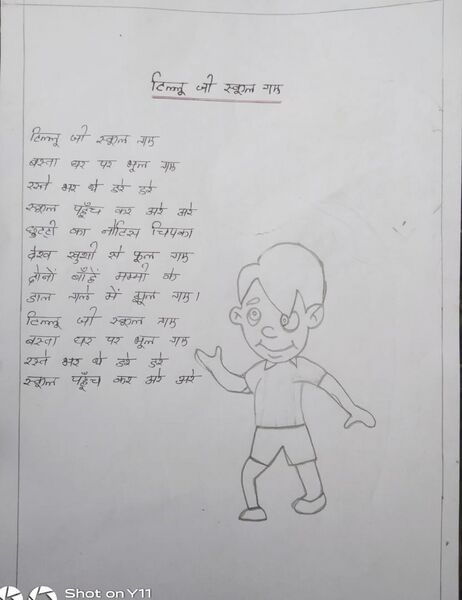 टिल्लू जी स्कूल गए
टिल्लू जी स्कूल गए
बस्ता घर पर भूल गए
रस्ते भर थे डरे डरे
स्कूल पहुँच कर अरे अरे
छुट्टी का नोटिस चिपका
देख खुशी से फूल गए
दोनों बाँहें मम्मी के
डाल गले में झूल गए।
टिल्लू जी स्कूल गए
बस्ता घर पर भूल गए
रस्ते भर थे डरे डरे
स्कूल पहूँच कर अरे अरे
Shot on Y11